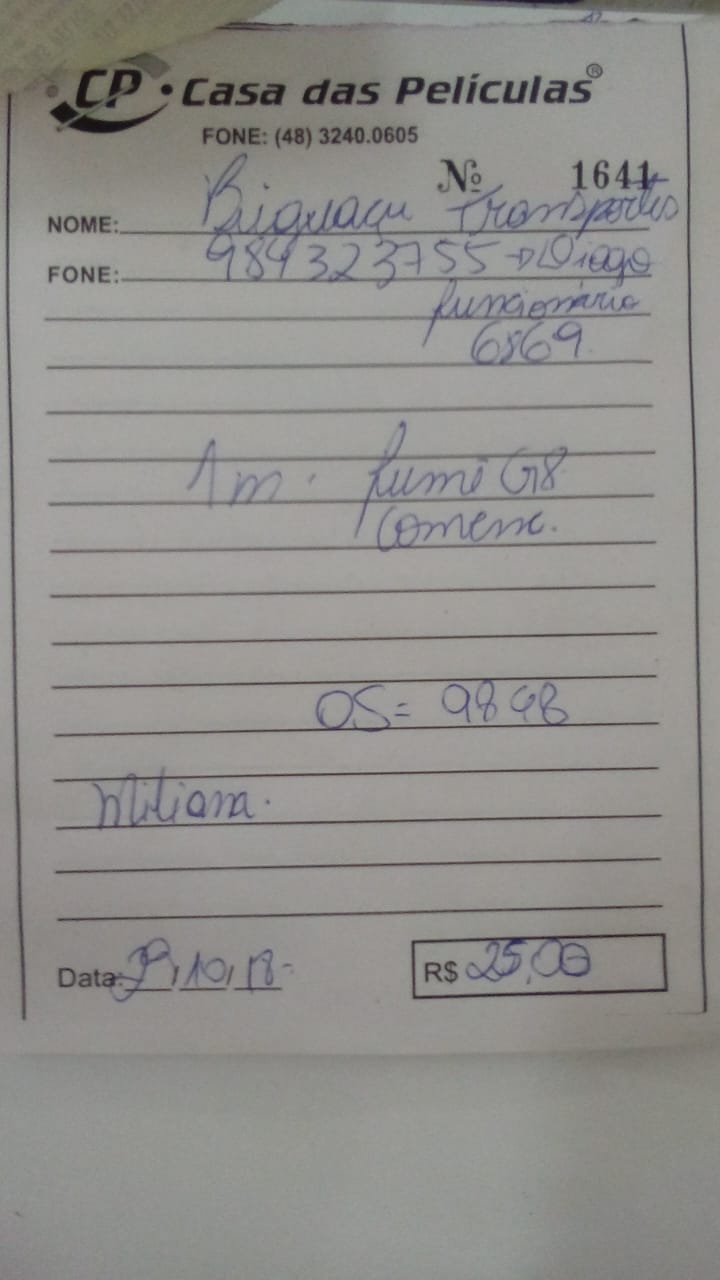 CP • Casa das Películas®
FONE: (48) 3240.0605
Nº 1641
NOME: Biguaçu Transportes
FONE: 984323755 → Diogo
funcionário
6869
1m. fumê G8
OS= 9898
Data: 29,10,18
R$ 25,00